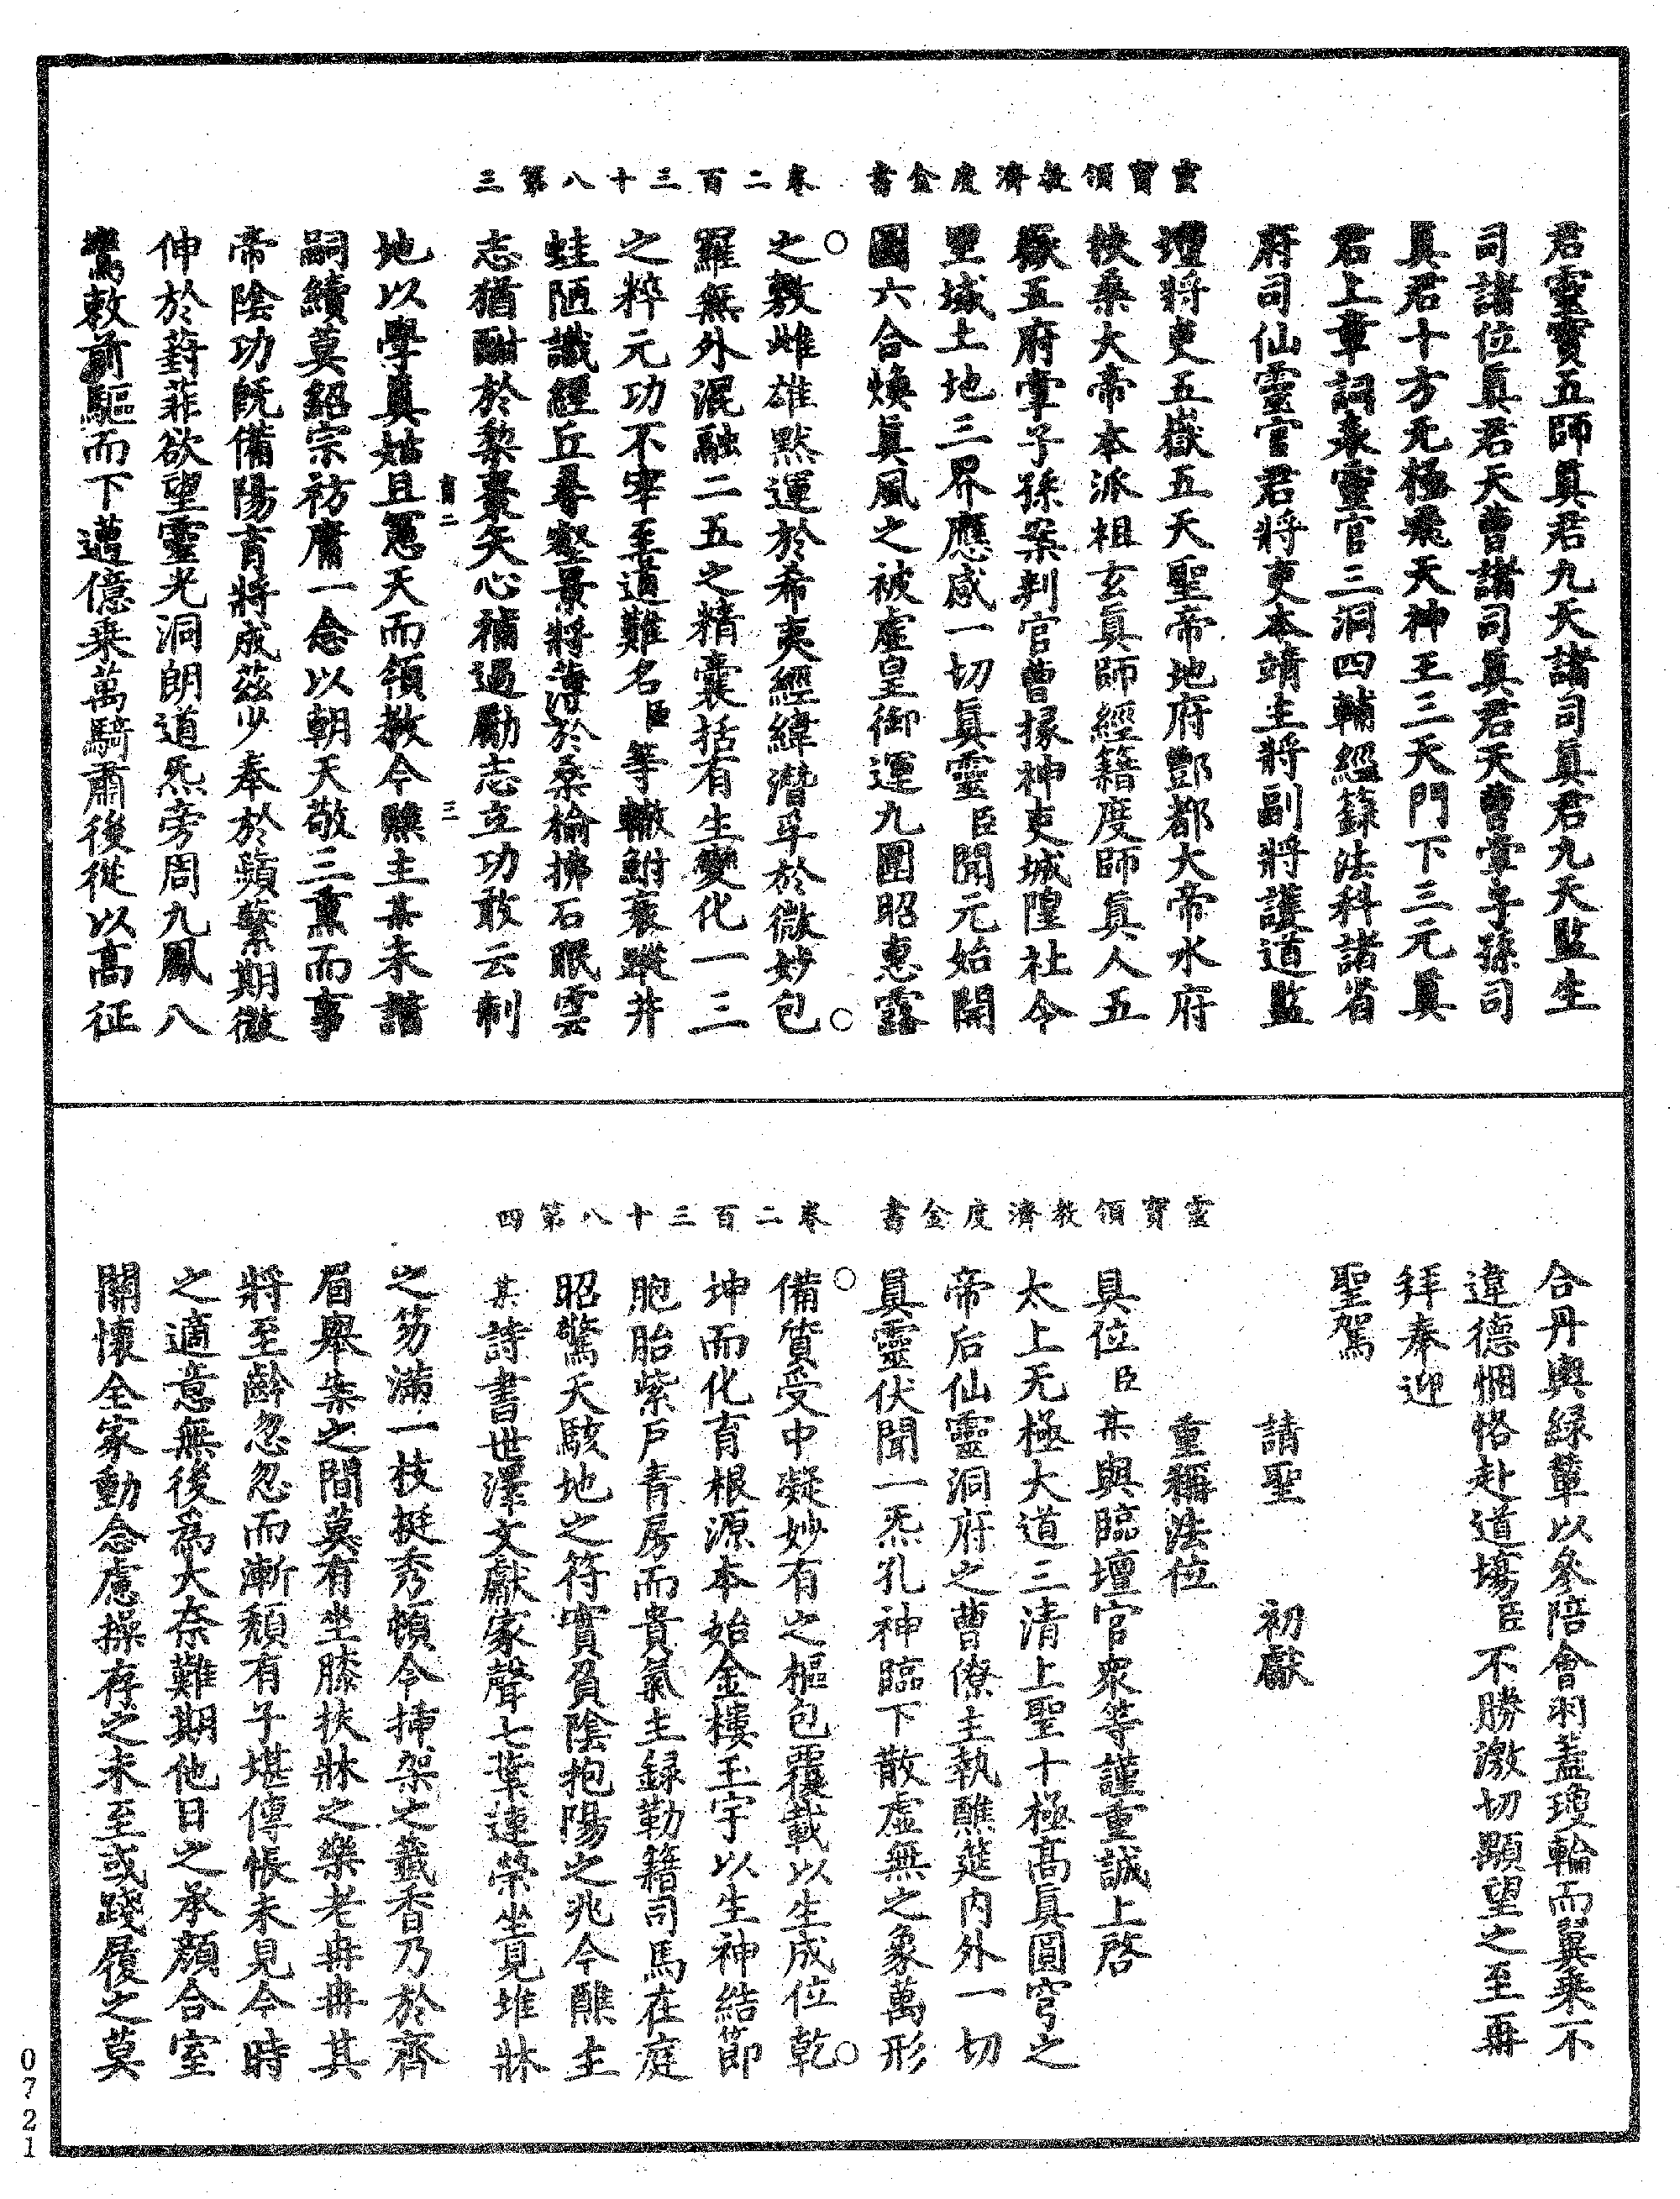 靈寶領教濟度金書　卷二百三十八第三
君靈寶五師真君九天諸司真君九天監生
司諸位真君天曹諸司真君天曹掌子孫司
真君十方无極飛天神王三天門下三元真
君上章詞表靈官三洞四輔經籙法科諸省
府司仙靈官君將吏本靖主將副將護道監
壇將吏五嶽五天聖帝地府酆都大帝水府
扶桑大帝本派祖玄真師經籍度師真人五
嶽五府掌子孫案判官曹掾神吏城隍社令
里域土地三界應感一切真靈臣聞元始開
圖六合煥真風之被虛皇御運九圍昭惠露
之敷雌雄默運於希夷經緯潛孚於微妙包
羅無外混融二五之精囊括有生變化一三
之粹元功不宰至道難名臣等轍鮒衰蹤井
蛙陋識經丘尋壑景將薄於桑榆拂石眠雲
志猶酣於藜棗矢心補過勵志立功敢云制
地以學真姑且愿天而領教今醮主某未諧
嗣續莫紹宗祊庸一念以朝天敬三熏而事
帝陰功既備陽育將成茲少奉於蘋蘩期微
伸於葑菲欲望靈光洞朗道炁旁周九鳳八
鸞敕前驅而下邁億乘萬騎肅後從以高征
靈寶領教濟度金書　卷二百三十八第四
合丹輿綠輦以參陪會羽蓋瓊輪而翼乘不
違德悃恪赴道場臣不勝激切顒望之至再
拜奉迎
聖駕
請聖　初獻
重稱法位
具位臣某與臨壇官眾等謹重誠上啓
太上无極大道三清上聖十極高真圓穹之
帝后仙靈洞府之曹僚主執醮筵內外一切
真靈伏聞一炁孔神臨下散虛無之象萬形
備質受中凝妙有之樞包覆載以生成位乾
坤而化育根源本始金樓玉宇以生神結節
胞胎紫戶青房而貴氣主録勒籍司馬在庭
昭驚天駭地之符實負陰抱陽之兆今醮主
某詩書世澤文獻家聲七葉連榮坐見堆牀
之笏滿一枝挺秀頓令插架之籤香乃於齊
眉舉案之間莫有坐膝扶牀之樂老冉冉其
將至齡忽忽而漸頹有子堪傳悵未見今時
之適意無後為大奈難期他日之承顏合室
關懷全家動念慮操存之未至或踐履之莫
寶二　三
0721